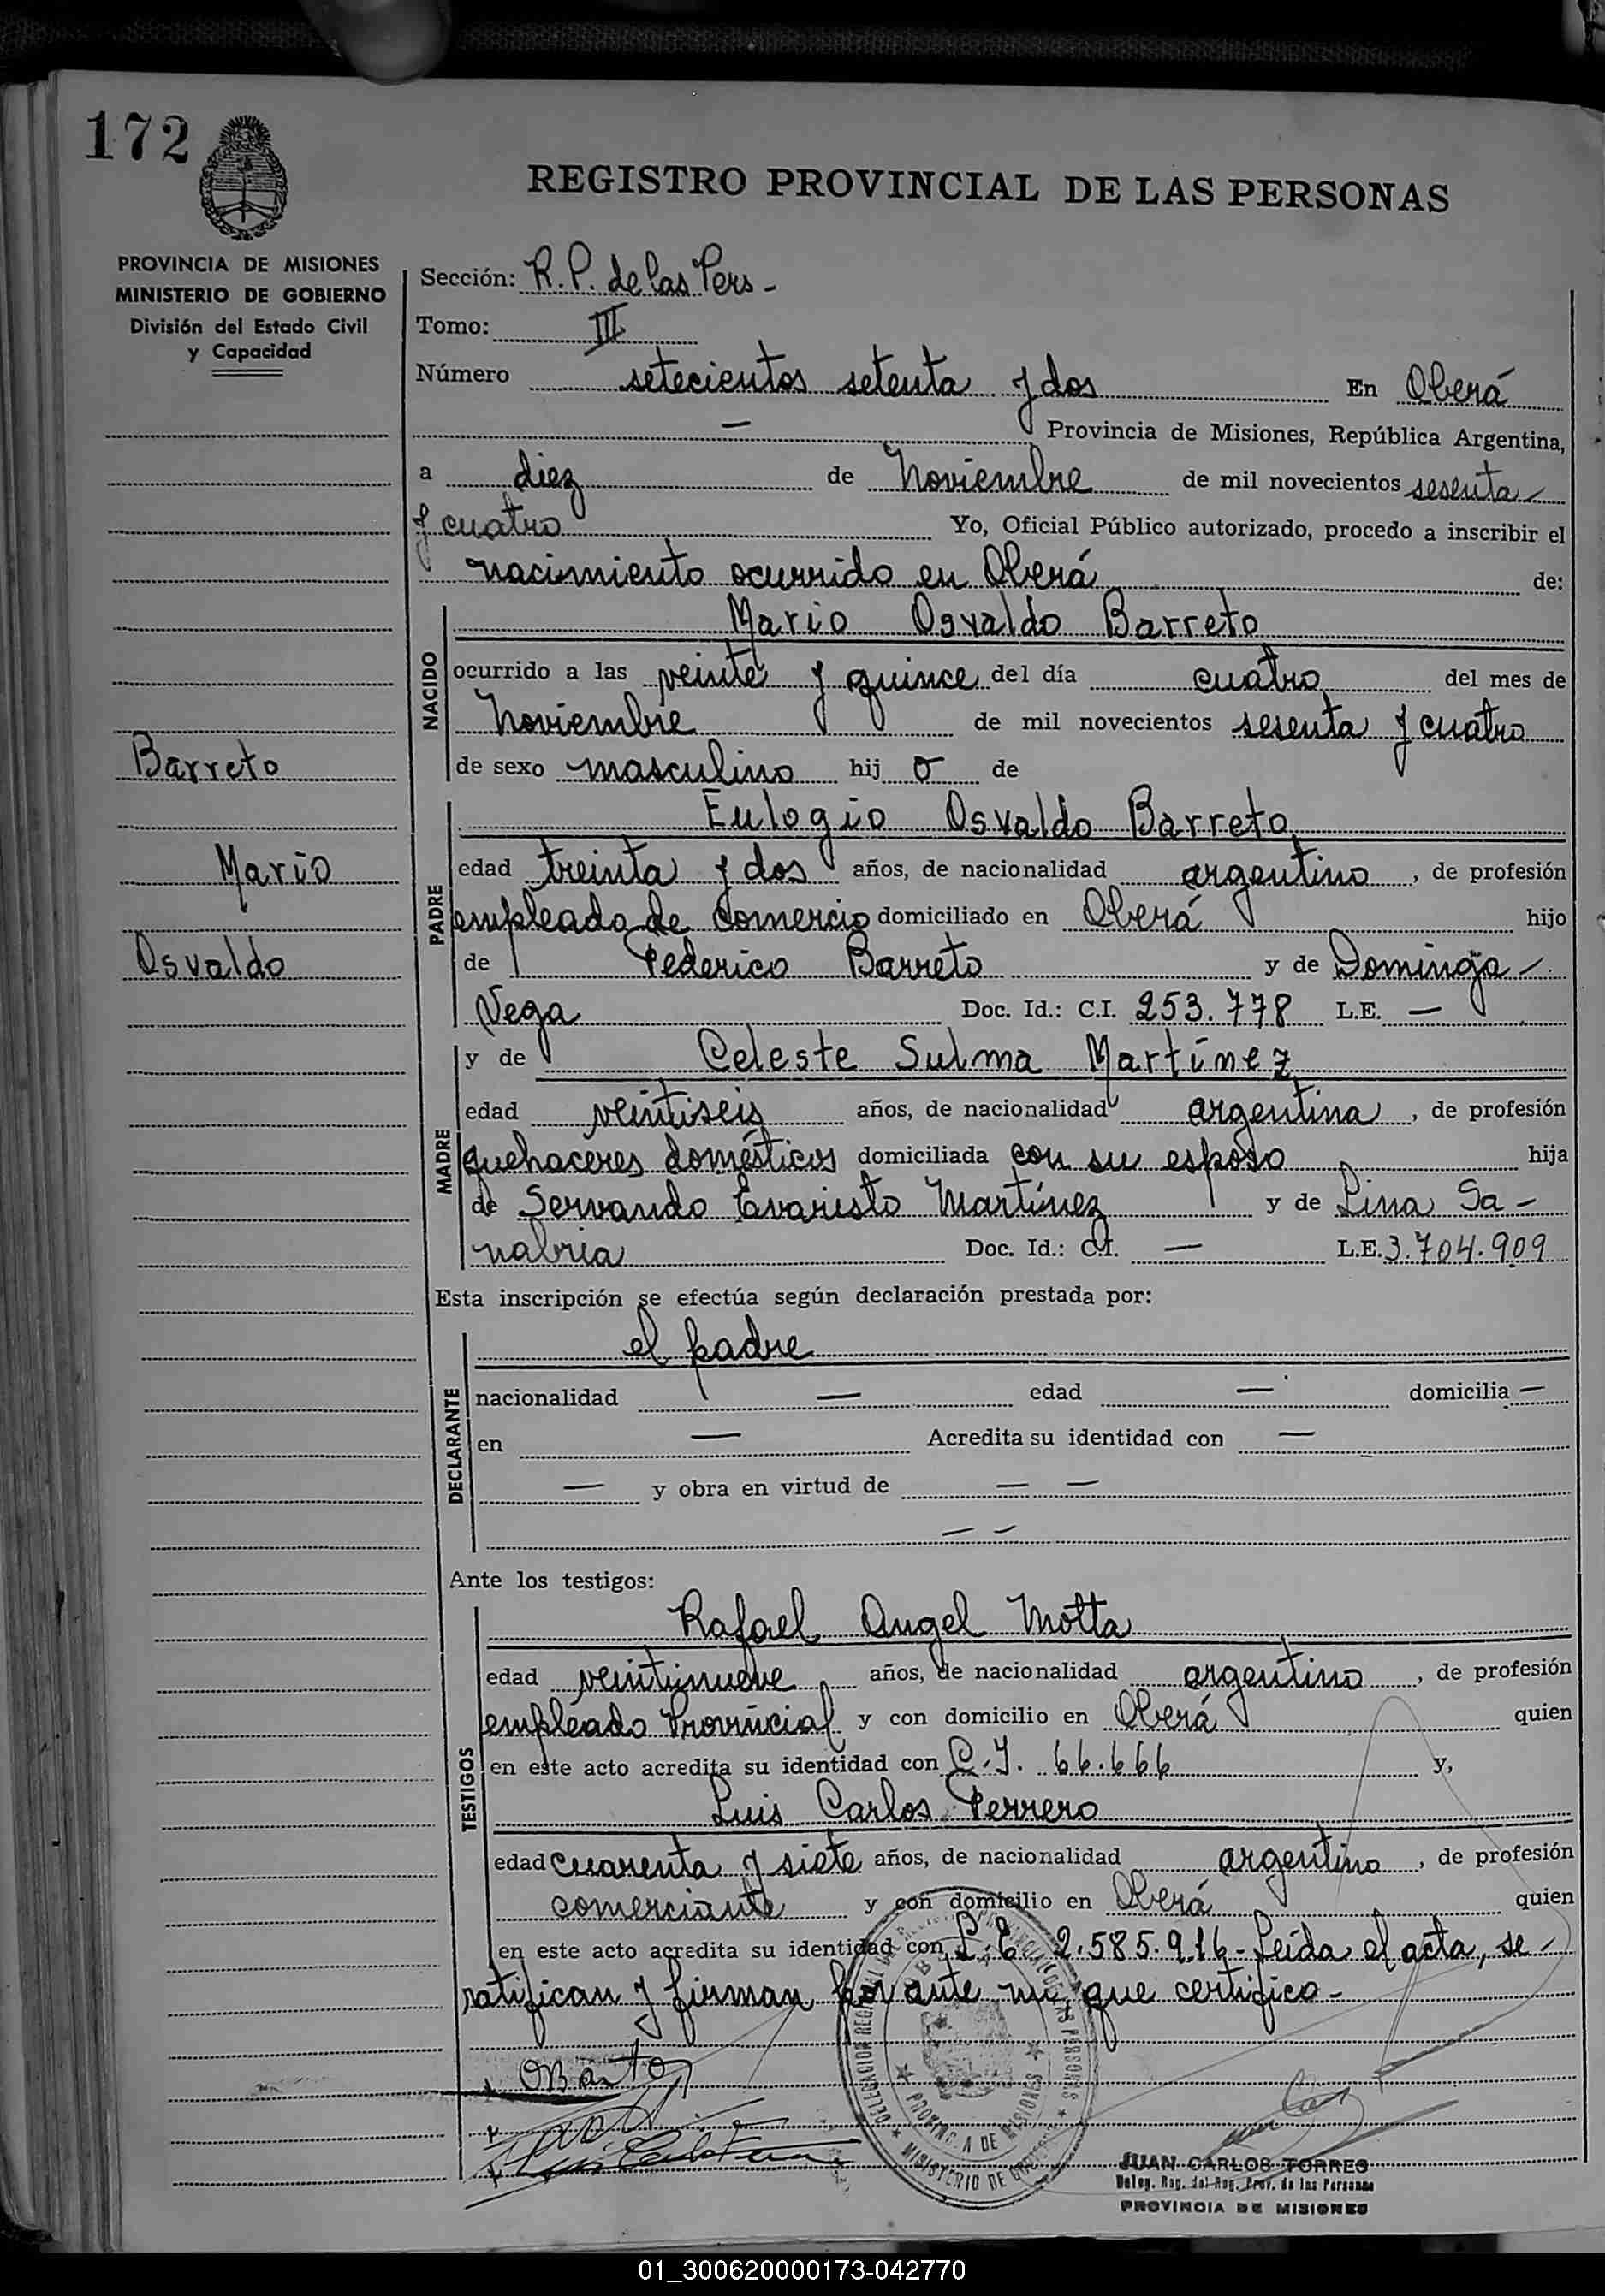 172
REGISTRO PROVINCIAL DE LAS PERSONAS
PROVINCIA DE MISIONES
MINISTERIO DE GOBIERNO
División del Estado Civil
y Capacidad
Sección: R.P. de las Pers -
Tomo: III
Número setecientos setenta y dos En Oberá
— Provincia de Misiones, República Argentina,
a diez de Noviembre de mil novecientos sesenta
y cuatro Yo, Oficial Público autorizado, procedo a inscribir el
nacimiento ocurrido en Oberá de:
NACIDO
Mario Osvaldo Barreto
ocurrido a las veinte y quince del día cuatro del mes de
Noviembre de mil novecientos sesenta y cuatro
de sexo masculino hij o de
Barreto
Mario
Osvaldo
PADRE
Eulogio Osvaldo Barreto
edad treinta y dos años, de nacionalidad argentino, de profesión
empleado de Comercio domiciliado en Oberá hijo
de Federico Barreto y de Dominga
Vega Doc. Id.: C.I. 253.778 L.E. —
MADRE
y de Celeste Sulma Martínez
edad veintiseis años, de nacionalidad argentina, de profesión
quehaceres domésticos domiciliada con su esposo hija
de Servando Evaristo Martínez y de Lina Sa-
nabria Doc. Id.: C.I. — L.E. 3.704.909
Esta inscripción se efectúa según declaración prestada por:
DECLARANTE
el padre
nacionalidad — edad — domicilia —
en — Acredita su identidad con —
— y obra en virtud de — —
— —
Ante los testigos:
TESTIGOS
Rafael Angel Motta
edad veintinueve años, de nacionalidad argentino, de profesión
empleado Provincial y con domicilio en Oberá quien
en este acto acredita su identidad con C.I. 66.666 y,
Luis Carlos Ferrero
edad cuarenta y siete años, de nacionalidad argentino, de profesión
comerciante y con domicilio en Oberá quien
en este acto acredita su identidad con L.E. 2.585.916 - Leída el acta, se
ratifican y firman por ante mi que certifico -
PROVINCIA DE MISIONES
JUAN CARLOS TORRES
Deleg. Reg. del Reg. Prov. de las Personas
PROVINCIA DE MISIONES
01_300620000173-042770